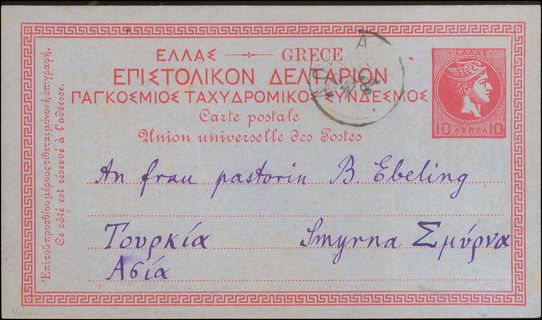 ΕΛΛΑΣ — GRECE
ΕΠΙΣΤΟΛΙΚΟΝ ΔΕΛΤΑΡΙΟΝ
ΠΑΓΚΟΣΜΙΟΣ ΤΑΧΥΔΡΟΜΙΚΟΣ ΣΥΝΔΕΣΜΟΣ
Carte postale
Union universelle des Postes
ΕΛΛΑΣ
10 ΛΕΠΤΑ 10
An frau pastorin B. Ebeling
Τουρκία Smyrna Σμύρνα
Ασία
Ἐπὶ τοῦ προσθίου μέρους τίθεται μόνον ἡ ἐπιγραφή.
Ce côté est réservé à l'adresse.